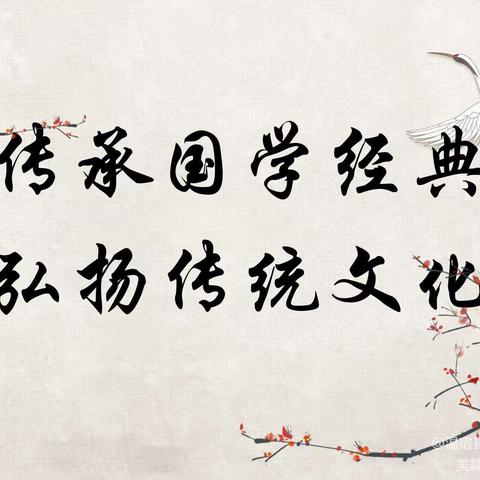 传承国学经典
弘扬传统文化
@温宿县
美篇